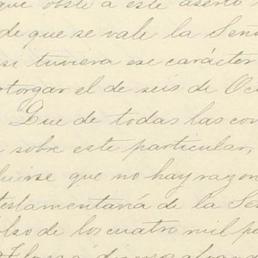 que obste a este aserto
de que se vale la Seño
si tuviera ese carácter
otorgar el de seis de Oc
Que de todas las con
sobre este particular,
se que no hay razon
testamentaría de la Se
lso de los cuatro mil pe